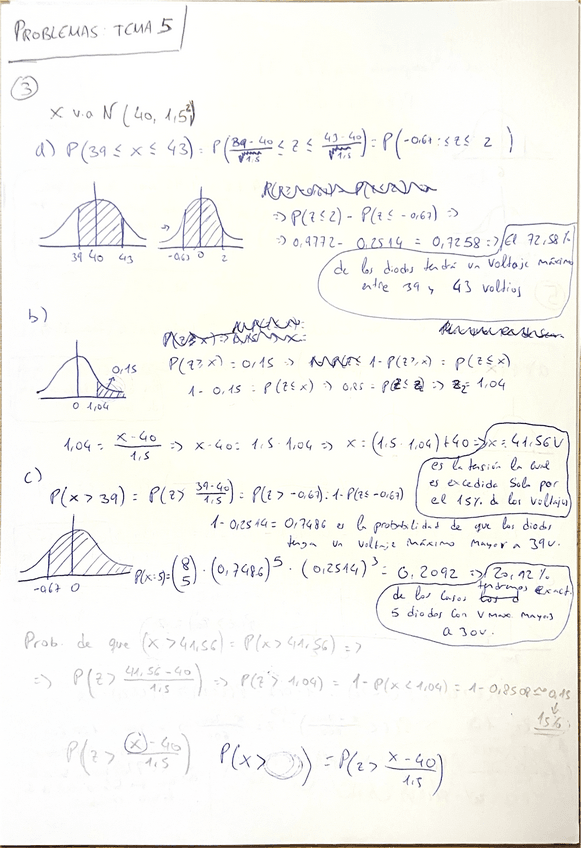 PROBLEMAS TEMA 5
3
X v.a N (40, 1,5²)
a) P(39 ≤ x ≤ 43) = P(39-40/1,5 ≤ z ≤ 43-40/1,5) = P(-0,67 ≤ z ≤ 2)
⇒ P(z ≤ 2) - P(z ≤ -0,67) ⇒
39 40 43 → -0,67 0 2
⇒ 0,9772 - 0,2514 = 0,7258 ⇒ El 72,58%
de los diodos tendrá un voltaje máximo
entre 39 y 43 voltios
b)
P(z ≥ x) = 0,15 ⇒ 1 - P(z ≥ x) = P(z ≤ x)
0,15
1 - 0,15 = P(z ≤ x) ⇒ 0,85 = P(z ≤ z) ⇒ z = 1,04
0 1,04
1,04 = x-40/1,5 ⇒ x-40 = 1,5·1,04 ⇒ x = (1,5·1,04)+40 ⇒ x = 41,56V
es la tensión la cual
es excedida solo por
el 15% de los voltajes
c)
P(x > 39) = P(z > 39-40/1,5) = P(z > -0,67) = 1 - P(z ≤ -0,67)
1 - 0,2514 = 0,7486 es la probabilidad de que los diodos
tenga un voltaje máximo mayor a 39v.
-0,67 0
P(x=5) = (8 5) · (0,7486)^5 · (0,2514)^3 = 0,2092 ⇒ 20,92%
de los casos tendremos exact.
5 diodos con V max. mayor
a 30v.
Prob. de que (x > 41,56) = P(x > 41,56) ⇒
⇒ P(z > 41,56-40/1,5) ⇒ P(z > 1,04) = 1 - P(x < 1,04) = 1 - 0,8508 ≈ 0,15
↓
15%
P(z > (x)-40/1,5) P(x > ) = P(z > x-40/1,5)